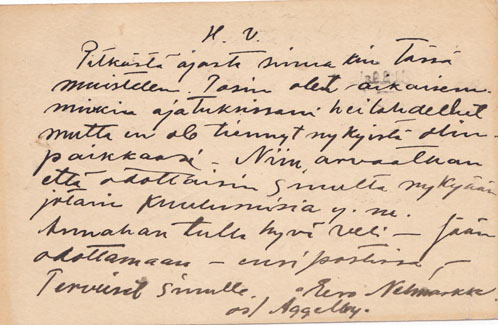 H. V.
Pitkästä ajasta sinua kin tässä
muistelen. Tosin olet aikaisem.
minkin ajatuksissani heilahdellut
mutta en ole tiennyt nykyistä olin-
paikkaasi – Niin, arvaathan
että odottaisin Sinulta nykyään
jotain kuulumisia y. m.
Annahan tulla hyvä veli – jään
odottamaan – ensi postissa, –
Terveiset Sinulle. Eero Nelimarkka
os/ Åggelby.